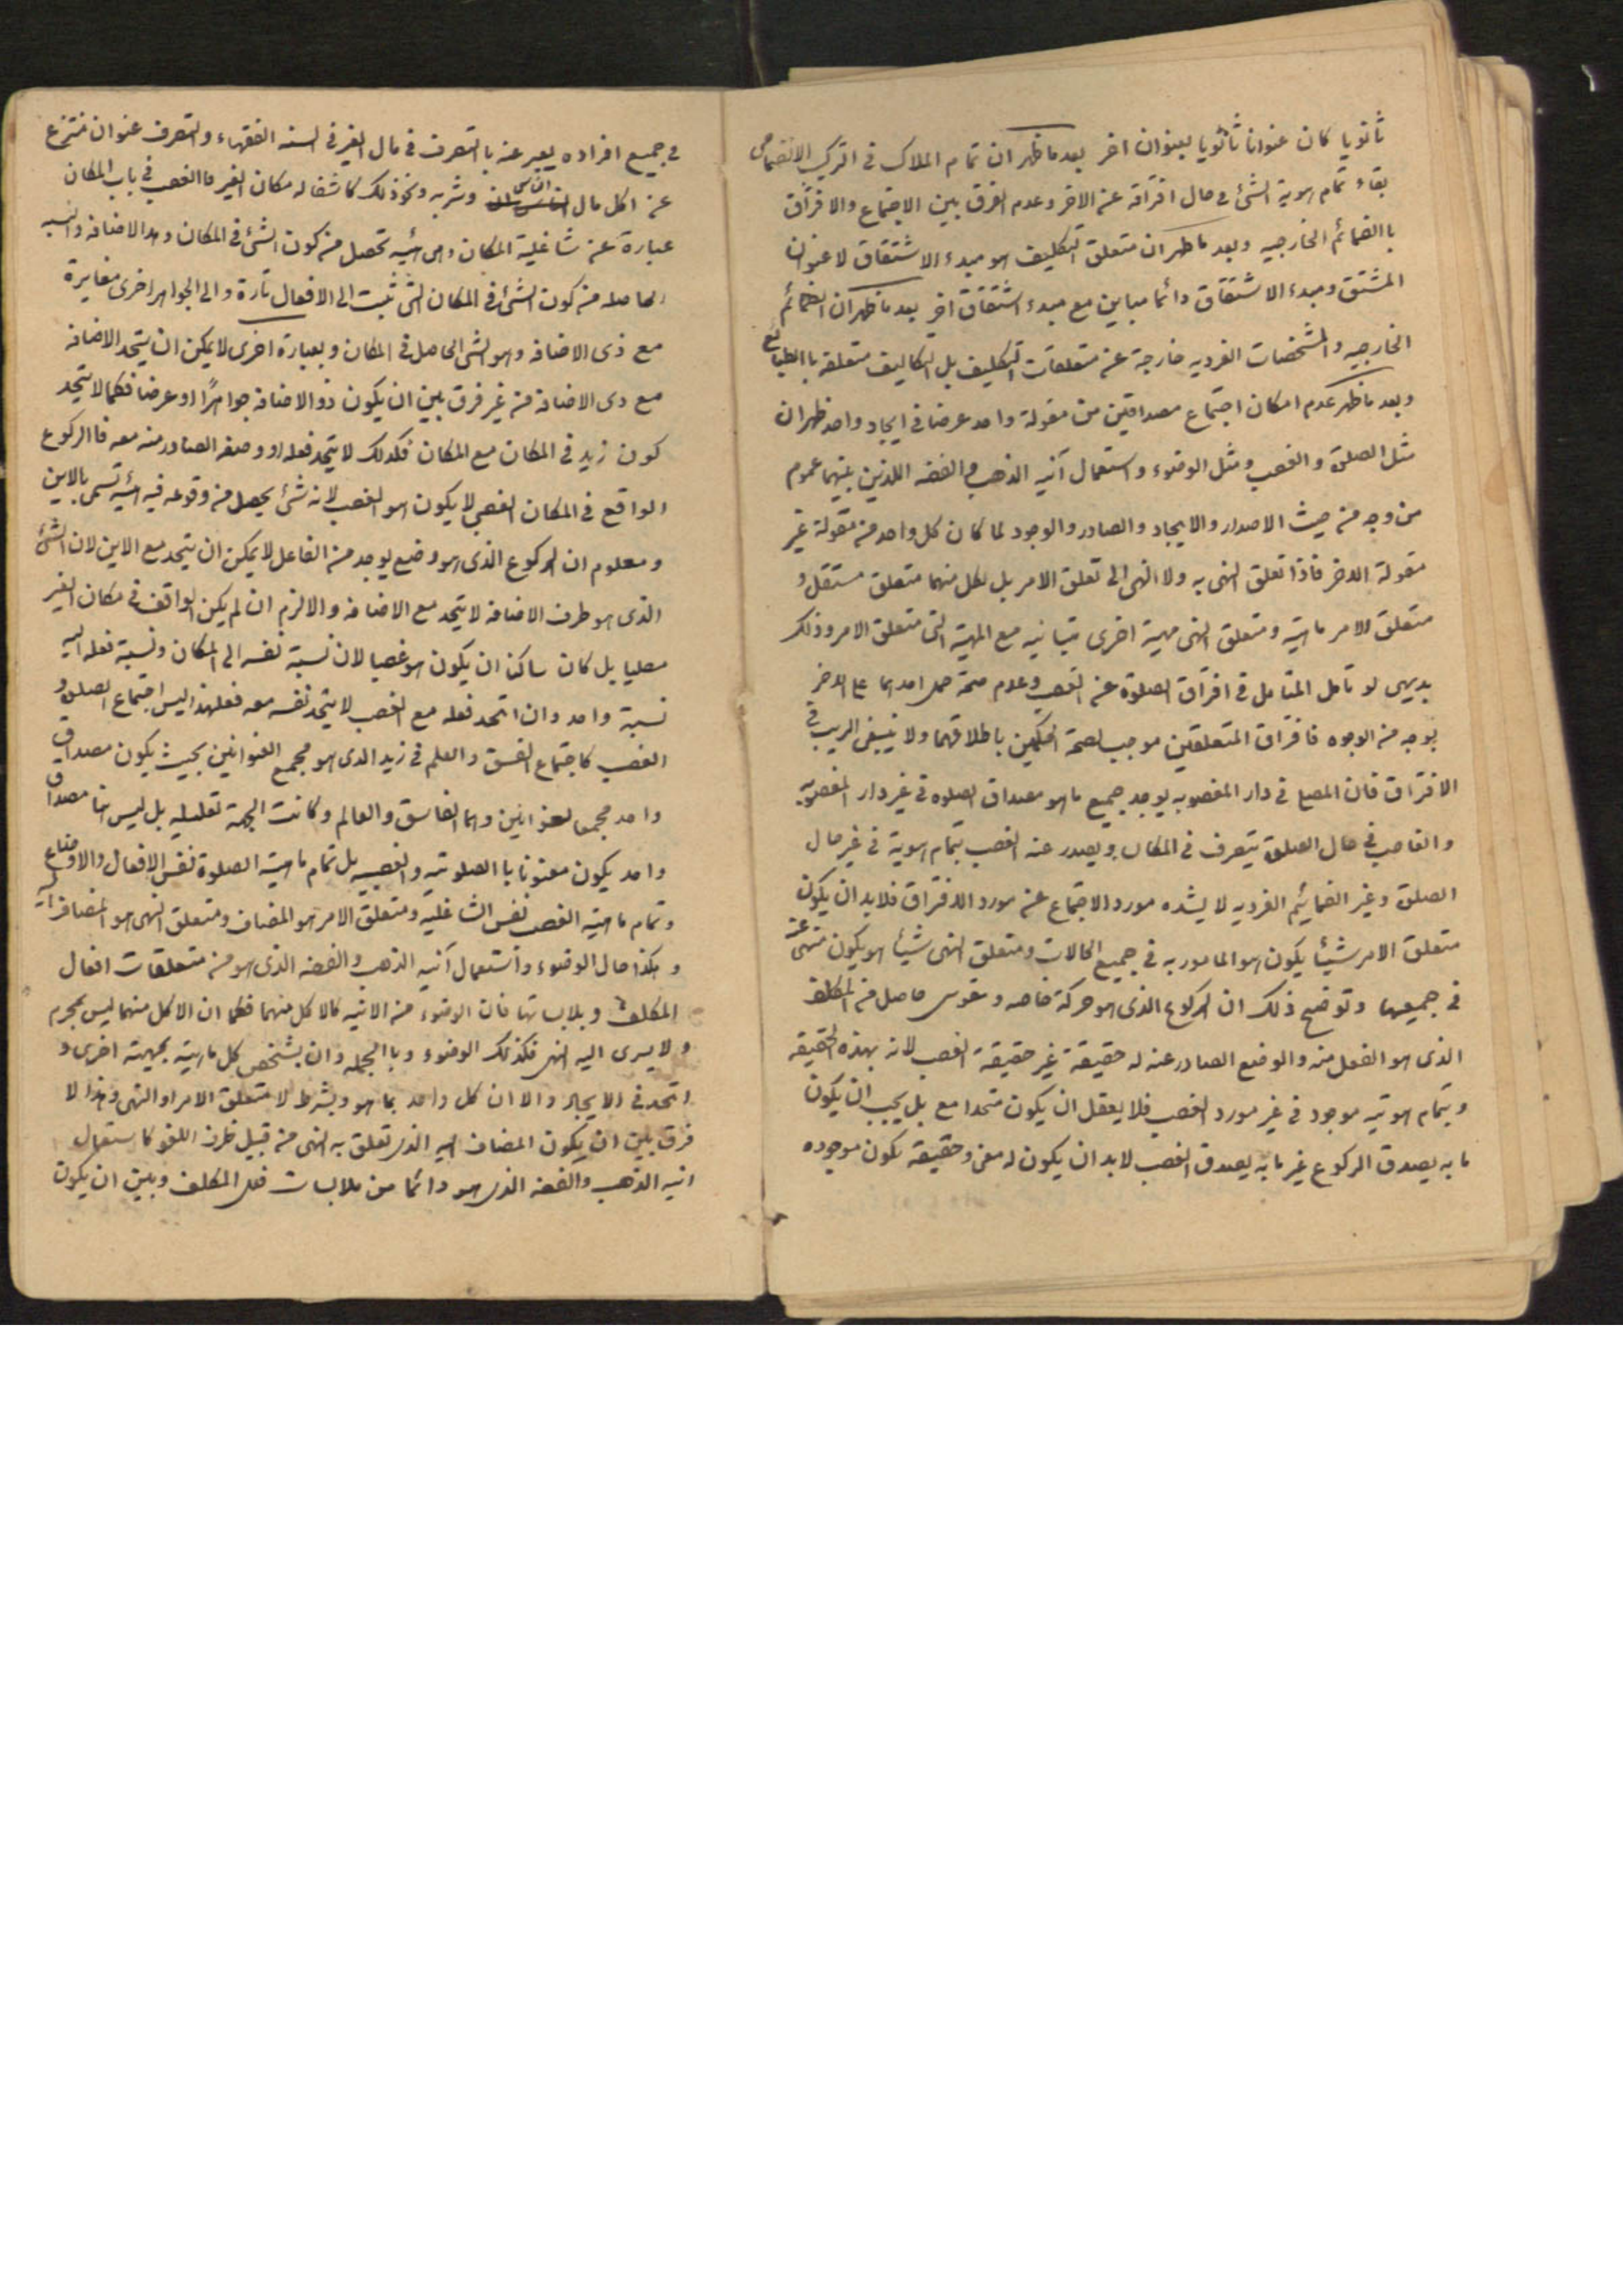 ثانويا كان عنوانا ثانويا لعنوان اخر بعد ما ظهر ان تمام الملاك فى التركيب الانضمامى
بقاء تمام هوية الشئ فى حال افتراقه عنه الاخر وعدم الفرق بين الاجتماع والافتراق
باالضمائم الخارجيه وبعد ما ظهر ان متعلق التكليف هو مبدء الاشتقاق لا عنوان
المشتق ومبدء الاشتقاق دائما مباين مع مبدء اشتقاق اخر بعد ما ظهر ان الضمائم
الخارجيه والمشخصات الفرديه خارجة عن متعلقات التكليف بل التكاليف متعلقه باالطبايع
وبعد ما ظهر عدم امكان اجتماع مصداقين من مقولة واحد عرضا فى ايجاد واحد ظهر ان
مثل الصلوة والغصب ومثل الوضوء واستعمال آنيه الذهب والفضه اللذين بينهما عموم
من وجه من حيث الاصدار والايجاد والصادر والوجود لما كان كل واحد من مقولة غير
مقولة الاخر فاذا تعلق النهى به ولا النهى الى تعلق الامر بل لكل منهما متعلق مستقل و
متعلق الامر ماهية ومتعلق النهى مهية اخرى متباينيه مع المهية التى متعلق الامر وذلك
بديهى لو تامل المتامل فى افتراق الصلوة عن الغصب وعدم صحة حمل احدهما على الاخر
بوجه من الوجوه فافتراق المتعلقين موجب لصحة الحكمين باطلاقهما ولا ينبغى الريب فى
الافتراق فان المصلى فى دار المغصوبه يوجد جميع ما هو مصداق الصلوه فى غير دار المغصوبه
والغاصب فى حال الصلوة يتصرف فى المكان ويصدر عنه الغصب بتمام هوية فى غير حال
الصلوة وغير الضمايئم الفرديه لا يشده مورد الاجتماع عن مورد الافتراق فلابد ان يكون
متعلق الامر شيئا يكون هو المامور به فى جميع الحالات ومتعلق النهى شيئا هو يكون منهى عنه
فى جميعها وتوضيح ذلك ان الركوع الذى هو حركة خاصه وتقوس حاصل من المكلف
الذى هو الفعل منه والوضع الصادر عنه له حقيقة غير حقيقة الغصب لانه بهذه الحقيقه
وبتمام هويته موجود فى غير مورد الغصب فلا يعقل ان يكون متحدا مع بل يجب ان يكون
ما به يصدق الركوع غير ما به يصدق الغصب لابد ان يكون له معنى وحقيقه تكون موجوده
فى جميع افراده يعبر عنه باالتصرف فى مال الغير فى السنه الفقهاء والتصرف عنوان منتزع
عن اكل مال الناس وشربه ونحو ذلك كاشغاله مكان الغير فاالغصب فى باب المكان
عبارة عن شاغلية المكان وهى هئيه تحصل من كون الشئ فى المكان وهذا الاضافه والنسبه
الحاصله من كون الشئ فى المكان التى تثبت الى الافعال تارة والى الجواهر اخرى مغايرة
مع ذى الاضافه وهو الشى الحاصل فى المكان وبعبارة اخرى لا يمكن ان يتحد الاضافه
مع ذى الاضافة من غير فرق بين ان يكون ذو الاضافه جواهرا او عرضا فكما لا يتحد
كون زيد فى المكان مع المكان فكذلك لا يتحد فعله او وصفه الصادر منه معه فاالركوع
الواقع فى المكان الغصبى لا يكون هو الغصب لانه شئ يحصل من وقوعه فيه هئية تسمى بالاين
ومعلوم ان الركوع الذى هو وضع يوجد من الفاعل لا يمكن ان يتحد مع الاين لان الشئ
الذى هو طرف الاضافه لا يتحد مع الاضافه والا لزم ان لم يكن الواقف فى مكان الغير
مصليا بل كان ساكنا ان يكون هو غصبا لان نسبة نفسه الى المكان ونسبة فعله اليه
نسبة واحد وان اتحد فعله مع الغصب لا يتحد نفسه معه فعلهذا ليس اجتماع الصلوة و
الغصب كاجتماع الفسق والعلم فى زيد الذى هو مجمع العنوانين بحيث يكون مصداق
واحد مجمعا لعنوانين وهما الفاسق والعالم وكانت الجهة تعليليه بل ليس هنا مصداق
واحد يكون معنونا باالصلوتيه والغصبيه بل تمام ماهية الصلوة نفس الافعال والاوضاع
وتمام ماهيته الغصب نفس الشاغليه ومتعلق الامر هو المضاف ومتعلق النهى هو المضاف اليه
وهكذا حال الوضوء واستعمال آنيه الذهب والفضه الذى هو من متعلقات افعال
المكلف وملابساتها فان الوضوء من الانيه كالاكل منهما فكما ان الاكل منهما ليس بمحرم
ولا يسرى اليه النهى فكذلك الوضوء وباالجمله وان يشخص كل ماهية بجهته اخرى و
اتحد فى الايجاد والا ان كل واحد بما هو وبشرط لا متعلق الامر او النهى وفهذا لا
فرق بين ان يكون المضاف اليه الذى تعلق به النهى من قبيل ظرف اللغو كاستعمال
انيه الذهب والفضه الذى هو دائما من ملابسات فعل المكلف وبين ان يكون